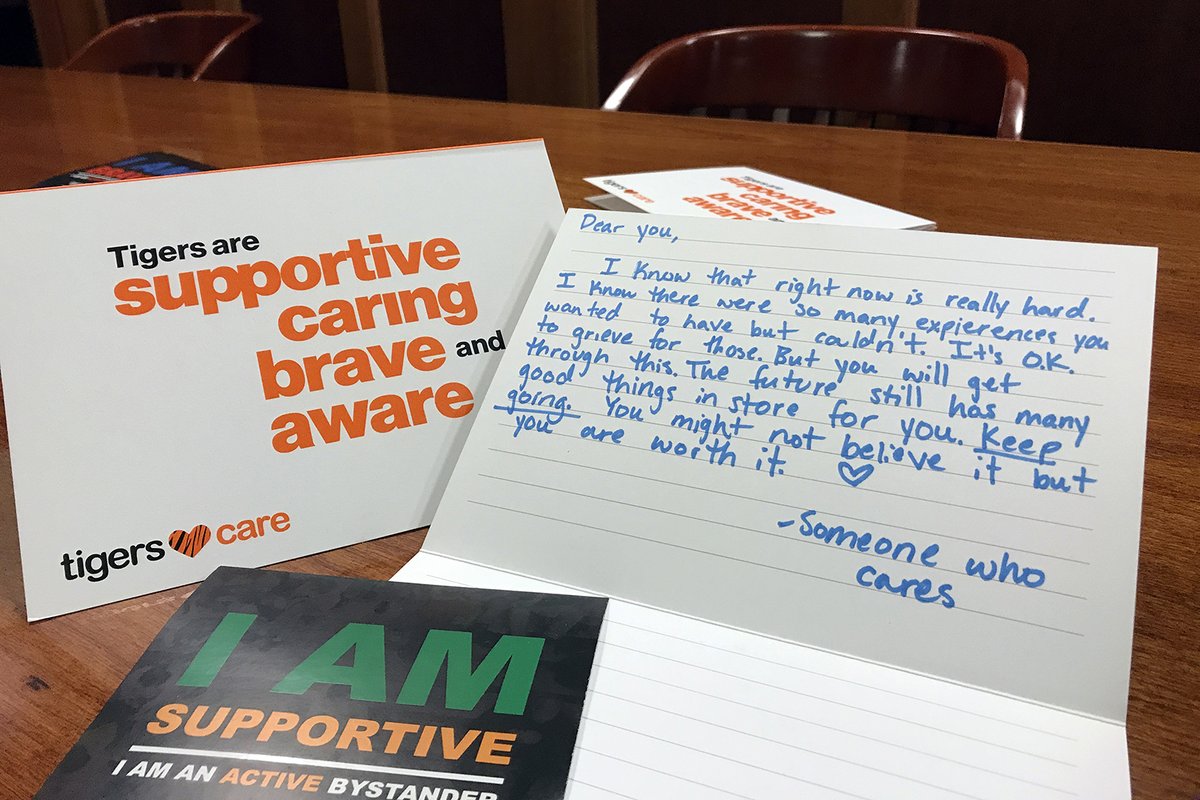 I AM
Tigers are
supportive
caring
brave and
aware
tigers care
Tigers are
supportive
caring
brave
aware
tigers care
Dear you,
I know that right now is really hard.
I know there were so many expierences you
wanted to have but couldn't. It's O.K.
to grieve for those. But you will get
through this. The future still has many
good things in store for you. Keep
going. You might not believe it but
you are worth it. ♡
-Someone who
cares
I AM
SUPPORTIVE
I AM AN ACTIVE BYSTANDER